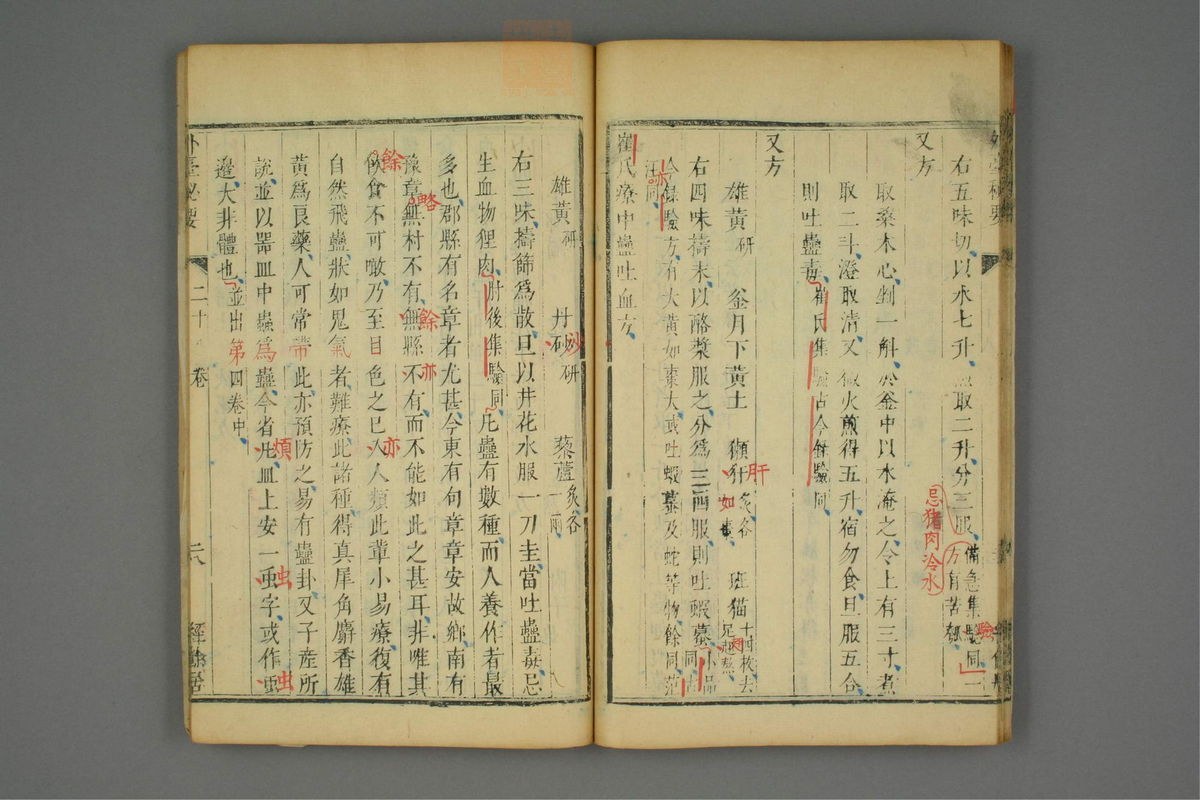 右五味切以水七升取二升分三服備急集驗同一方有苦瓠
忌猪肉冷水
又方
取桑木心剉一斛於釜中以水淹之令上有三寸煮
取二斗澄取清又微火煎得五升宿勿食旦服五合
則吐蠱毒崔氏集驗古今錄驗同
又方
雄黃研 釜月下黃土 獺犴炙各如棗 班猫十四枚去足翅熬
肝
右四味擣末以酪漿服之分爲三四服則吐蝦蟇小品同古
今錄驗方有大黃如棗大或吐蝦蟇及蛇等物餘同范
汪同
亦
崔氏療中蠱吐血方
雄黃研 丹砂研 藜蘆炙各一兩
右三味擣篩爲散旦以井花水服一刀圭當吐蠱毒忌
生血物狸肉肘後集驗同凡蠱有數種而人養作者最
多也郡縣有名章者尤甚今東有句章章安故鄉南有
豫章無村不有無縣不有而不能如此之甚耳非唯其
略
餘
亦
飲食不可噉乃至目色之已入人類此輩小易療復有
餘
亦
自然飛蠱狀如鬼氣者難療此諸種得真犀角麝香雄
黃爲良藥人可常帶此亦預防之易有蠱卦又子產所
說並以器皿中蟲爲蠱今省凡皿上安一䖝字或作䖝
煩
虫
虫
邉大非體也並出第四卷中
外臺秘要
二十
卷
二八
經餘居